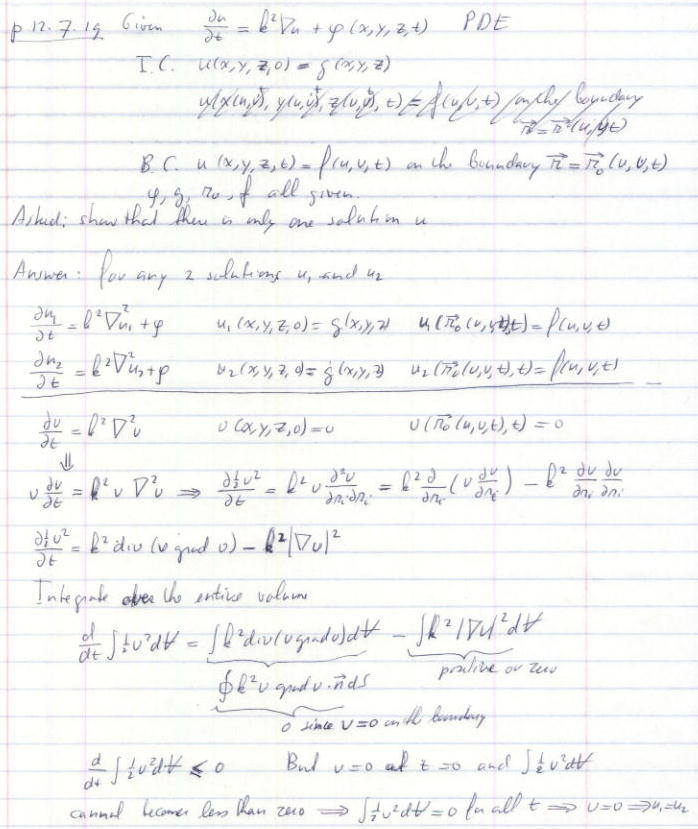 p 12.7.19 Given ∂u/∂t = k²∇u + φ(x,y,z,t) PDE
I.C. u(x,y,z,0) = g(x,y,z)
u(x(u,v), y(u,v), z(u,v), t) = f(u,v,t) on the boundary
B.C. u(x,y,z,t) = f(u,v,t) on the boundary r⃗ = r⃗₀(u,v,t)
φ, g, r₀, f all given.
Asked: show that there is only one solution u
Answer: for any 2 solutions u₁ and u₂
∂u₁/∂t = k²∇²u₁ + φ u₁(x,y,z,0) = g(x,y,z) u₁(r⃗₀(u,v,t),t) = f(u,v,t)
∂u₂/∂t = k²∇²u₂ + φ u₂(x,y,z,0) = g(x,y,z) u₂(r⃗₀(u,v,t),t) = f(u,v,t)
∂v/∂t = k²∇²v v(x,y,z,0) = 0 v(r⃗₀(u,v,t),t) = 0
⇓
v ∂v/∂t = k² v ∇²v ⇒ ∂½v²/∂t = k² v ∂²v/∂rᵢ∂rᵢ = k² ∂/∂rᵢ (v ∂v/∂rᵢ) − k² ∂v/∂rᵢ ∂v/∂rᵢ
∂½v²/∂t = k² div(v grad v) − k²|∇v|²
Integrate over the entire volume
d/dt ∫½v²dV = ∫k²div(v grad v)dV − ∫k²|∇v|²dV
positive or zero
∮k²v grad v·n⃗ dS
0 since v=0 on the boundary
d/dt ∫½v²dV ≤ 0 But v=0 at t=0 and ∫½v²dV
cannot become less than zero ⇒ ∫½v²dV = 0 for all t ⇒ v=0 ⇒ u₁=u₂